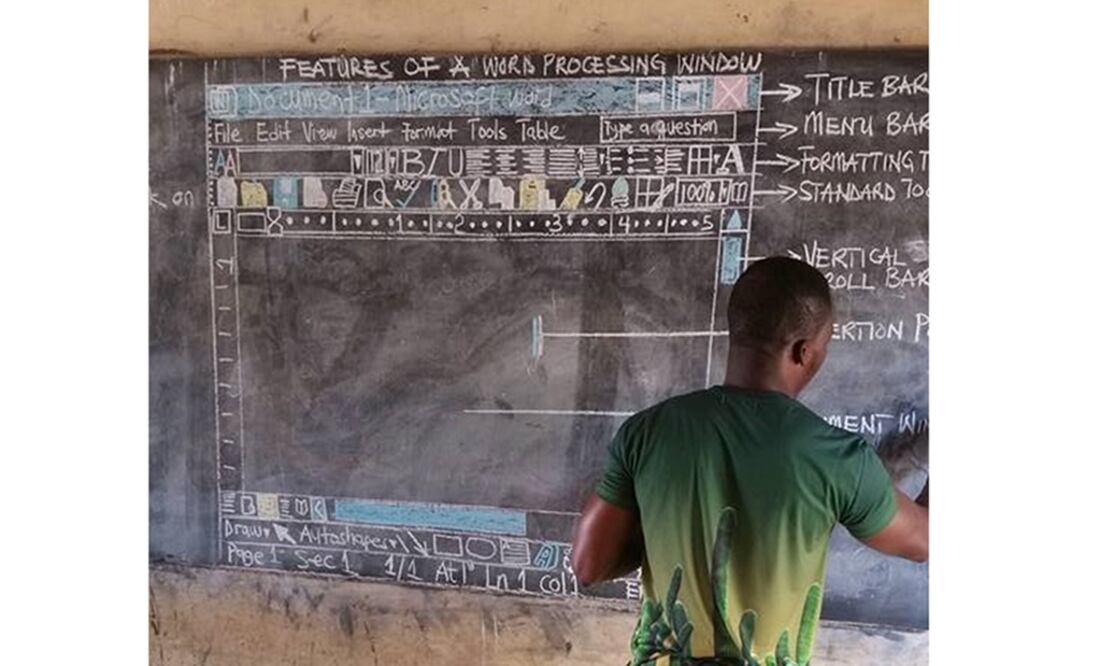 FEATURES OF A WORD PROCESSING WINDOW
Document 1 - Microsoft word
TITLE BAR
File Edit View Insert Format Tools Table
Type a question
MENU BAR
AA
B I U
A
FORMATTING T
k on
ABC
100%
STANDARD TOO
L
1 2 3 4 5
VERTICAL
ROLL BAR
1
ERTION P
MENT WIN
Draw Autoshapes
Page 1 Sec 1 1/1 At 1" Ln 1 Col 1